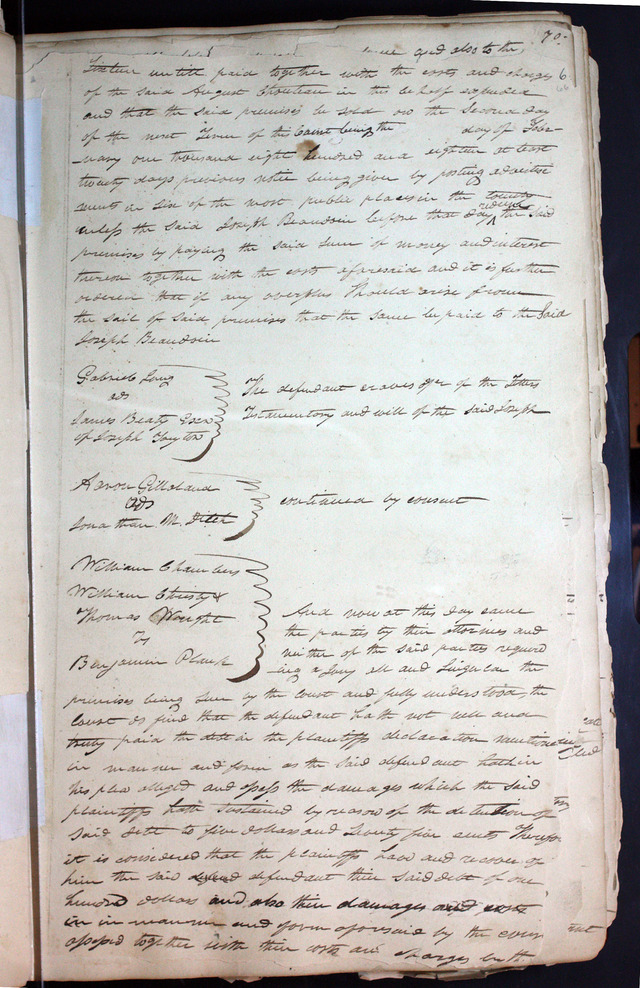 70.
and also to the
untill paid together with the costs and charges
of the said August Chouteau in this behalf expended
and that the said premises be sold on the Second day
of the next Term of this Court being the day of Febr-
uary one thousand eight hundred and eighteen at least
twenty days previous notice being given by posting advertise
ments in six of the most public places in the county
unless the said Joseph Beaudoin before that day redeem the said
premises by paying the said sum of money and interest
thereon together with the costs aforesaid and it is further
ordered that if any overplus Should arise from
the sail of said premises that the same be paid to the Said
Joseph Beaudoin
Gabriel Long
ads
James Beaty Exor
of Joseph
The defendant craves oyer of the letters
Testamentory and will of the said Joseph
Aaron Gilleland
ads
Jonathan M.
continued by consent
William Chambers
William Christy &
Thomas Wright
vs
Benjamin
And now at this day came
the parties by their attornies and
neither of the said parties requir
ing a Jury all and Singular the
premises being seen by the court and fully understood the
Court do find that the defendant hath not well and
truly paid the debt in the plaintiffs declaration mentioned
in manner and form as the said defendant hath in
his plea alleged and assess the damages which the said
plaintiffs hath sustained by reason of the detention of
said debt to five dollars and Seventy five cents Therefore
it is considered that the plaintiffs have and recover of
him the said defendant their said debt of one
hundred dollars and also their damages and costs
in in manner and form aforesaid by the court
assessed together with their costs and charges by th